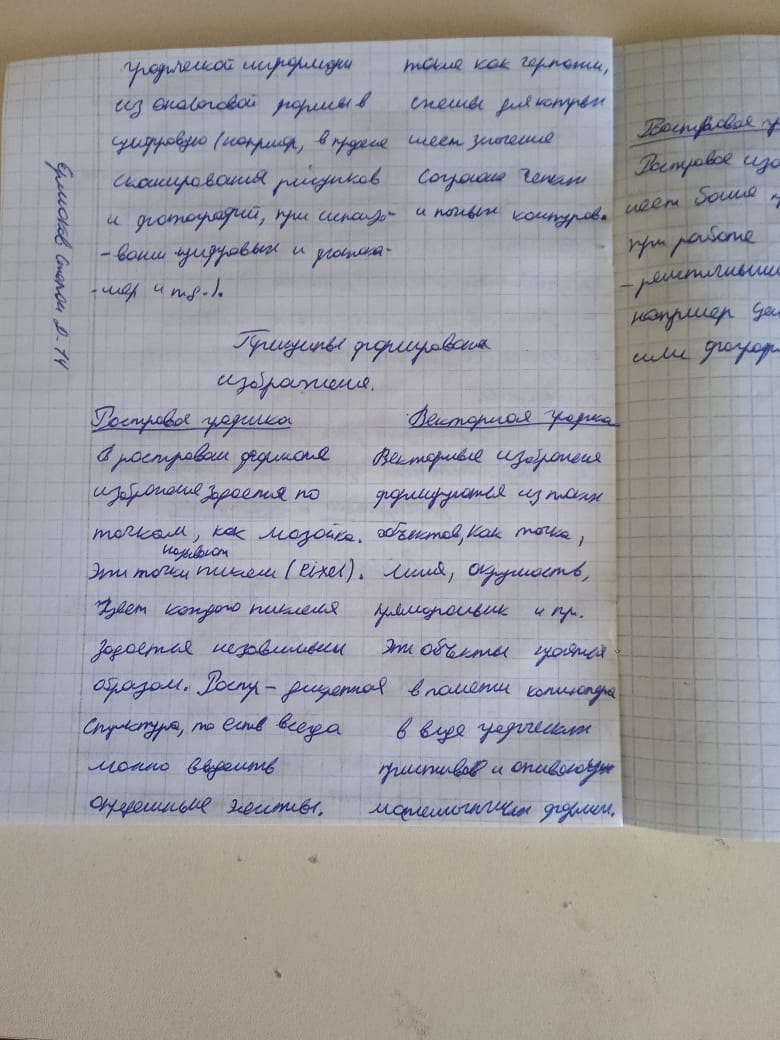 графической информации
из аналоговой формы в
цифровую (например, в процессе
сканирования рисунков
и фотографий, при использо-
-вании цифровых и фотока-
-мер и т.д.).
такие как чертежи,
схемы для которых
имеет значение
сохранение четких
и точных контуров.
Принципы формирования
изображения.
Растровая графика
В растровом формате
изображение задается по
точкам, как мозайка.
называют
Эти точки пиксели (Pixel).
Цвет каждого пикселя
задается независимым
образом. Растр - дискретная
структура, то есть всегда
можно выделить
отдельные элементы.
Векторная графика
Векторные изображения
формируются из таких
объектов, как точка,
линия, окружность,
прямоугольник и пр.
Эти объекты хранятся
в памяти компьютера
в виде графических
примитивов и описывающих
математических формул.
Растровая
Растровое изо
имеет более
при работе
например
или фотограф
Степан Д-14